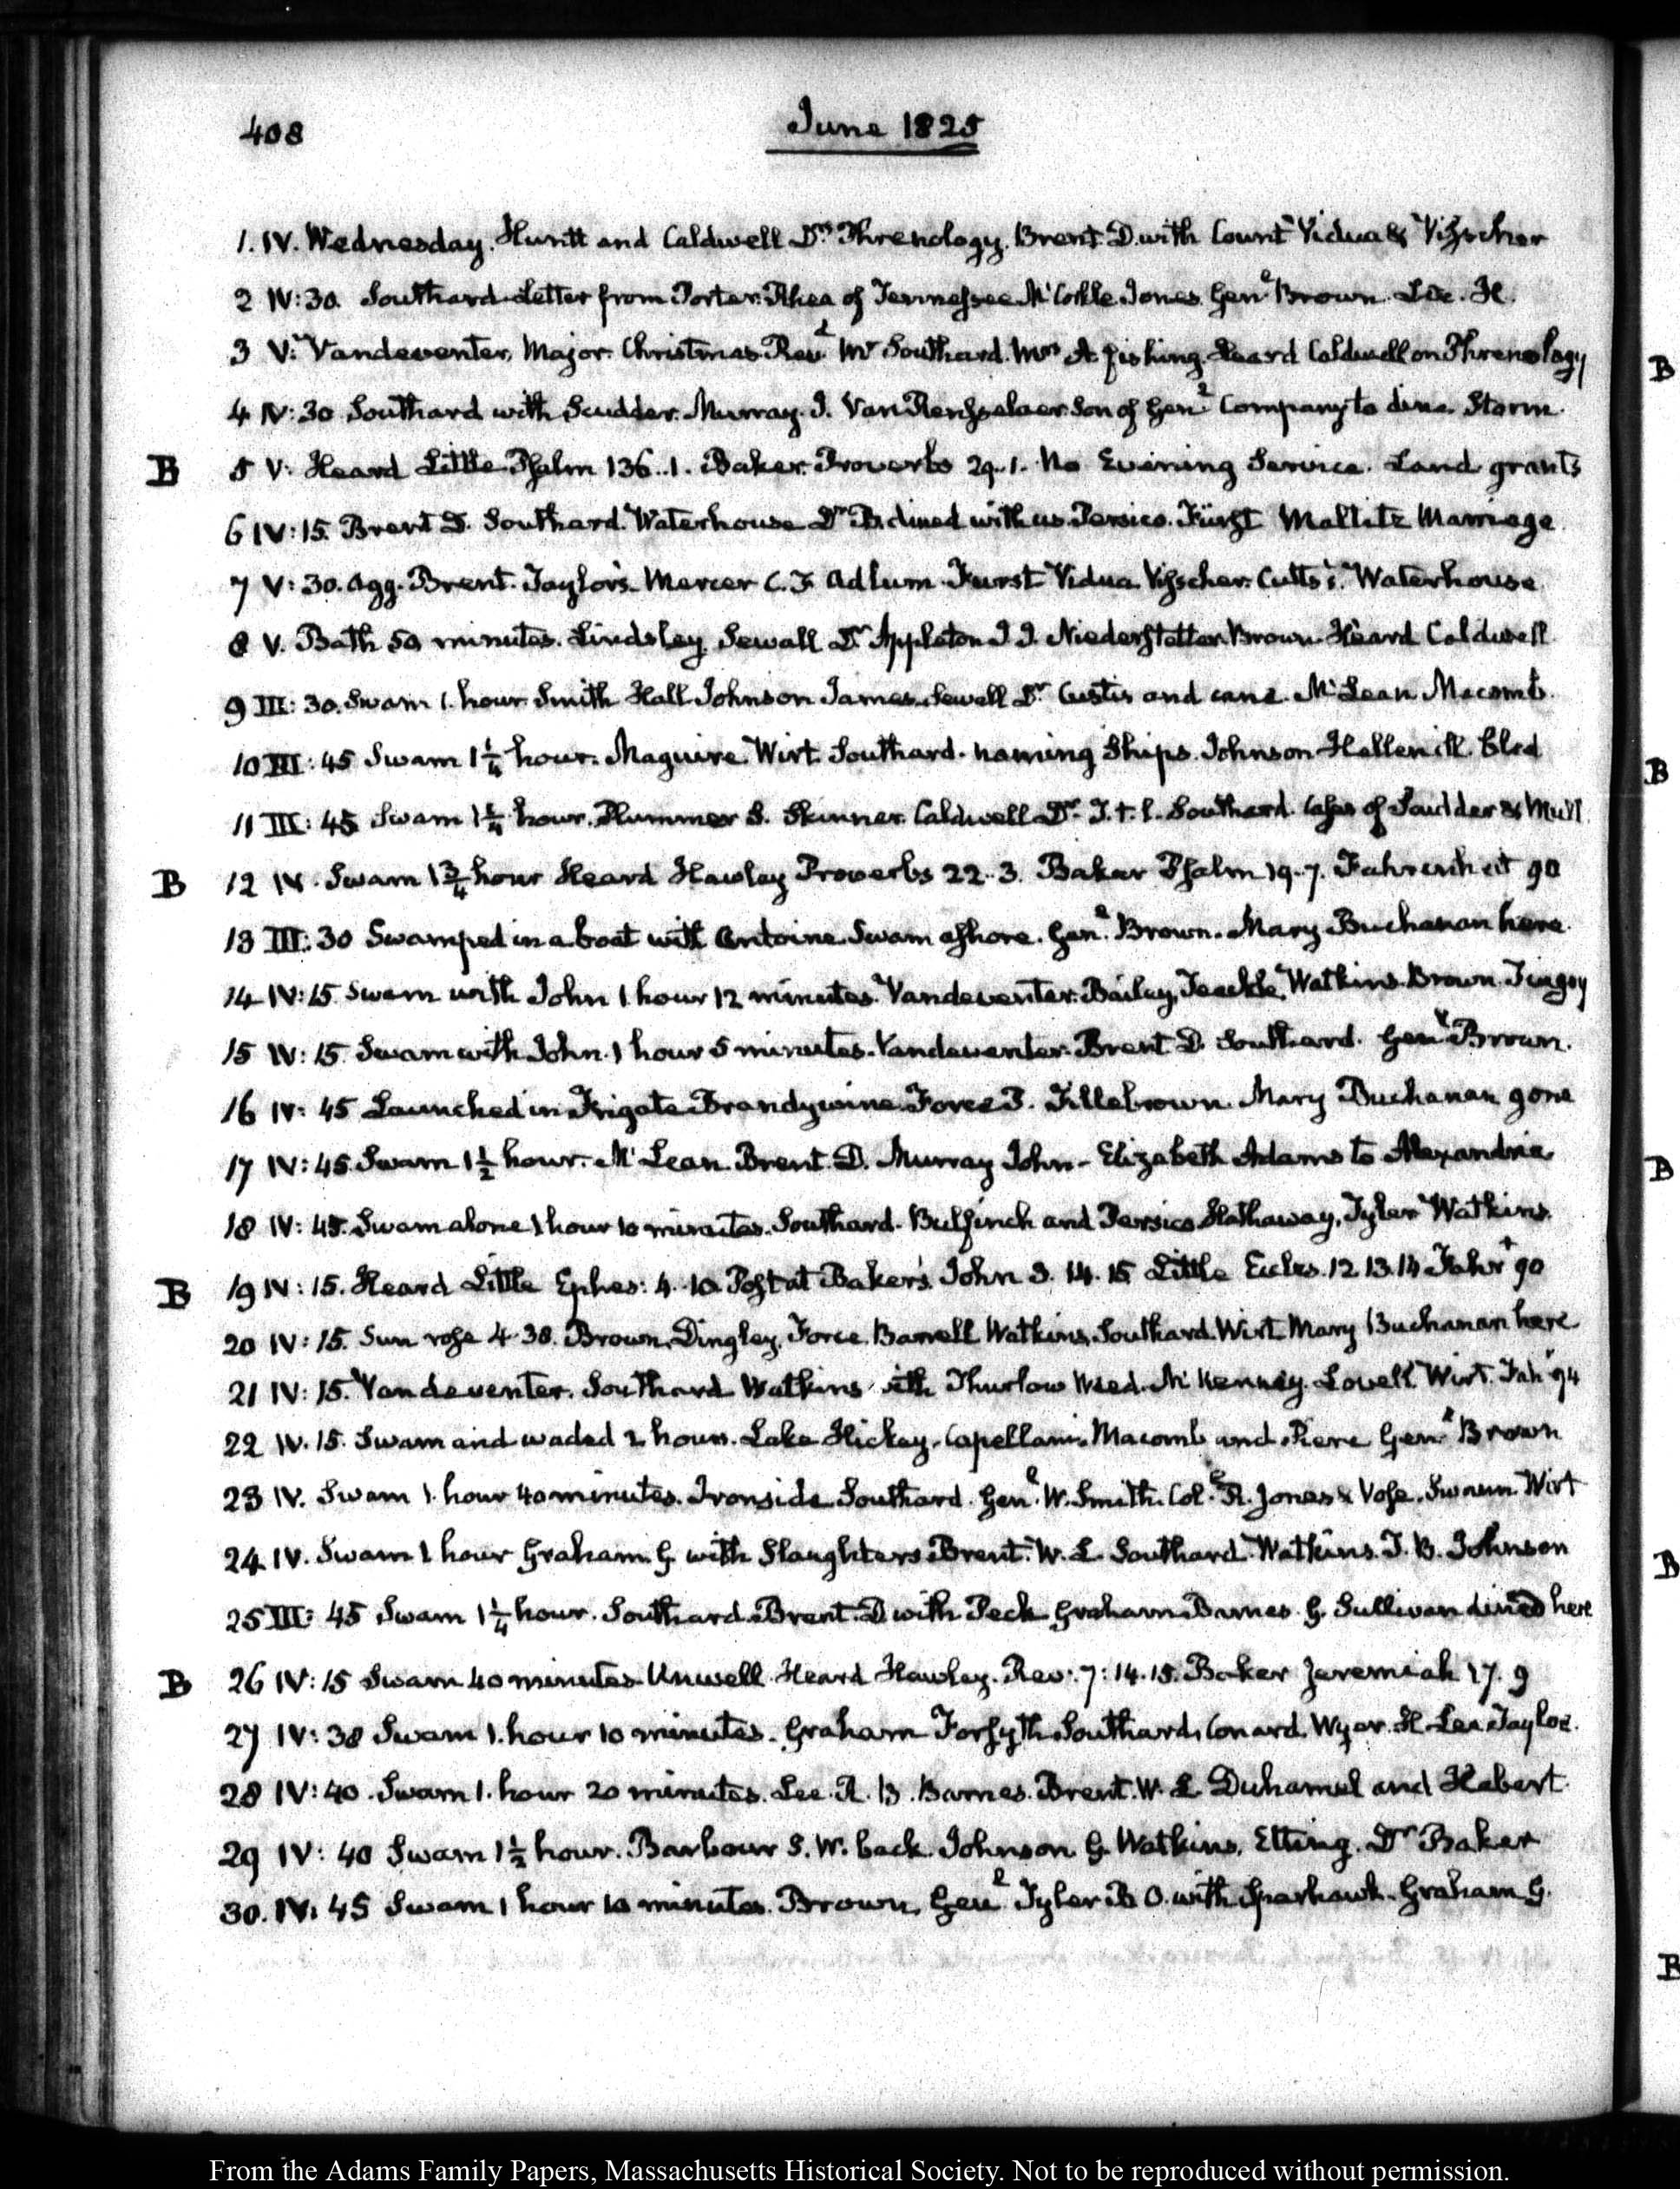 408
June 1825
1. IV. Wednesday. Huntt and Caldwell Drs. Phrenology. Brent. D. with Count Vidua & Visscher
2 IV:30. Southard Letter from Porter. Rhea of Tennessee McCorkle Jones. Genl. Brown. Lee. H.
3 V: Vandeventer, Major. Christmas Revd. Mr Southard. Mrs A fishing. Heard Caldwell on Phrenology
4 IV:30 Southard with Scudder. Murray. I. Van Rensselaer Son of Genl. Company to dine. Storm.
B 5 V: Heard Little Psalm 136..1. Baker. Proverbs 29..1. No Evening Service. Land grants
6 IV:15. Brent D. Southard. Waterhouse Dr B. dined with us. Persico. Fürst Maltitz Marriage.
7 V:30. Agg. Brent. Taylor's. Mercer C. F. Adlum. Furst Vidua Visscher. Cutts's. Waterhouse
8 V. Bath 50 minutes. Lindsley. Sewall Dr Appleton J J. Niederstetter. Brown. Heard Caldwell
9 III:30. Swam 1. hour Smith Hall Johnson James. Sewell Dr. Custis and cane. McLean Macomb.
10 III:45 Swam 1 1/4 hour. Maguire Wirt. Southard. naming Ships. Johnson Hellen ill. bled
11 III:45 Swam 1 1/4 hour. Plummer S. Skinner. Caldwell Dr. T.t.l. Southard. Cases of Scudder & Mull
B 12 IV. Swam 1 3/4 hour Heard Hawley Proverbs 22..3. Baker Psalm 19..7. Fahrenheit 90
13 III:30 Swamped in a boat with Antoine. Swam ashore. Genl. Brown. Mary Buchanan here
14 IV:15. Swam with John 1 hour 12 minutes. Vandeventer. Bailey, Teackle, Watkins. Brown. Tingey
15 IV:15 Swam with John 1 hour 5 minutes. Vandeventer. Brent D. Southard. Genl Brown.
16 IV:45 Launched in Frigate Brandywine. Force P. Fillebrown. Mary Buchanan gone
17 IV:45. Swam 1 1/2 hour. McLean. Brent. D. Murray John - Elizabeth Adams to Alexandria
18 IV:45. Swam alone 1 hour 10 minutes. Southard. Bulfinch and Persico Hathaway, Tyler Watkins.
B 19 IV:15. Heard Little Ephes: 4..10. Post at Baker's. John 3. 14. 15 Little Eccles. 12 13.14 Fahrt 90
20 IV:15. Sun rose 4.38. Brown. Dingley, Force. Barrell Watkins, Southard. Wirt Mary Buchanan here
21 IV:15. Vandeventer. Southard Watkins with Thurlow Weed. McKenney. Lovell. Wirt. Fahr 94
22 IV.15. Swam and waded 2 hours. Lake Hickey. Capellano. Macomb and Genl Brown
23 IV. Swam 1. hour 40 minutes. Ironside Southard. Genl. W. Smith. Col. R. Jones & Vose. Swam. Wirt
24 IV. Swam 1 hour Graham. G with Slaughters. Brent. W. L Southard. Watkins. T. B. Johnson
25 III:45 Swam 1 1/4 hour. Southard. Brent. D with Peck Graham Barnes. G. Sullivan dined here
B 26 IV:15 Swam 40 minutes. Unwell. Heard Hawley. Rev: 7:14.15. Baker Jeremiah 17. 9
27 IV:38 Swam 1. hour 10 minutes. Graham Forsyth. Southard. Conard. Wyer. H Lee. Tayloe.
28 IV:40. Swam 1. hour 20 minutes. Lee. R. B. Barnes. Brent. W. L Duhamel and Hebert.
29 IV:40 Swam 1 1/2 hour. Barbour S. W. back. Johnson G. Watkins. Elting. Dr Baker
30. IV:45 Swam 1 hour 10 minutes. Brown, Genl Tyler B O. with Sparhawk. Graham G.
From the Adams Family Papers, Massachusetts Historical Society. Not to be reproduced without permission.